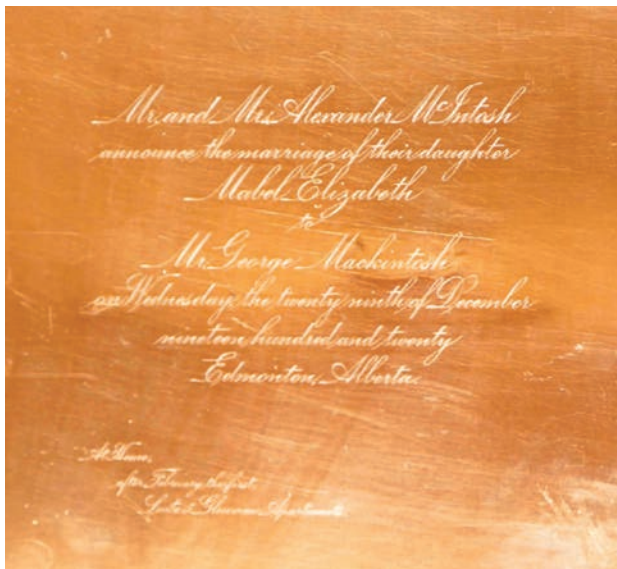 Mr. and Mrs. Alexander McIntosh
announce the marriage of their daughter
Mabel Elizabeth
to
Mr. George Mackintosh
on Wednesday, the twenty ninth of December
nineteen hundred and twenty
Edmonton, Alberta.
At Home,
after February the first
Apartments